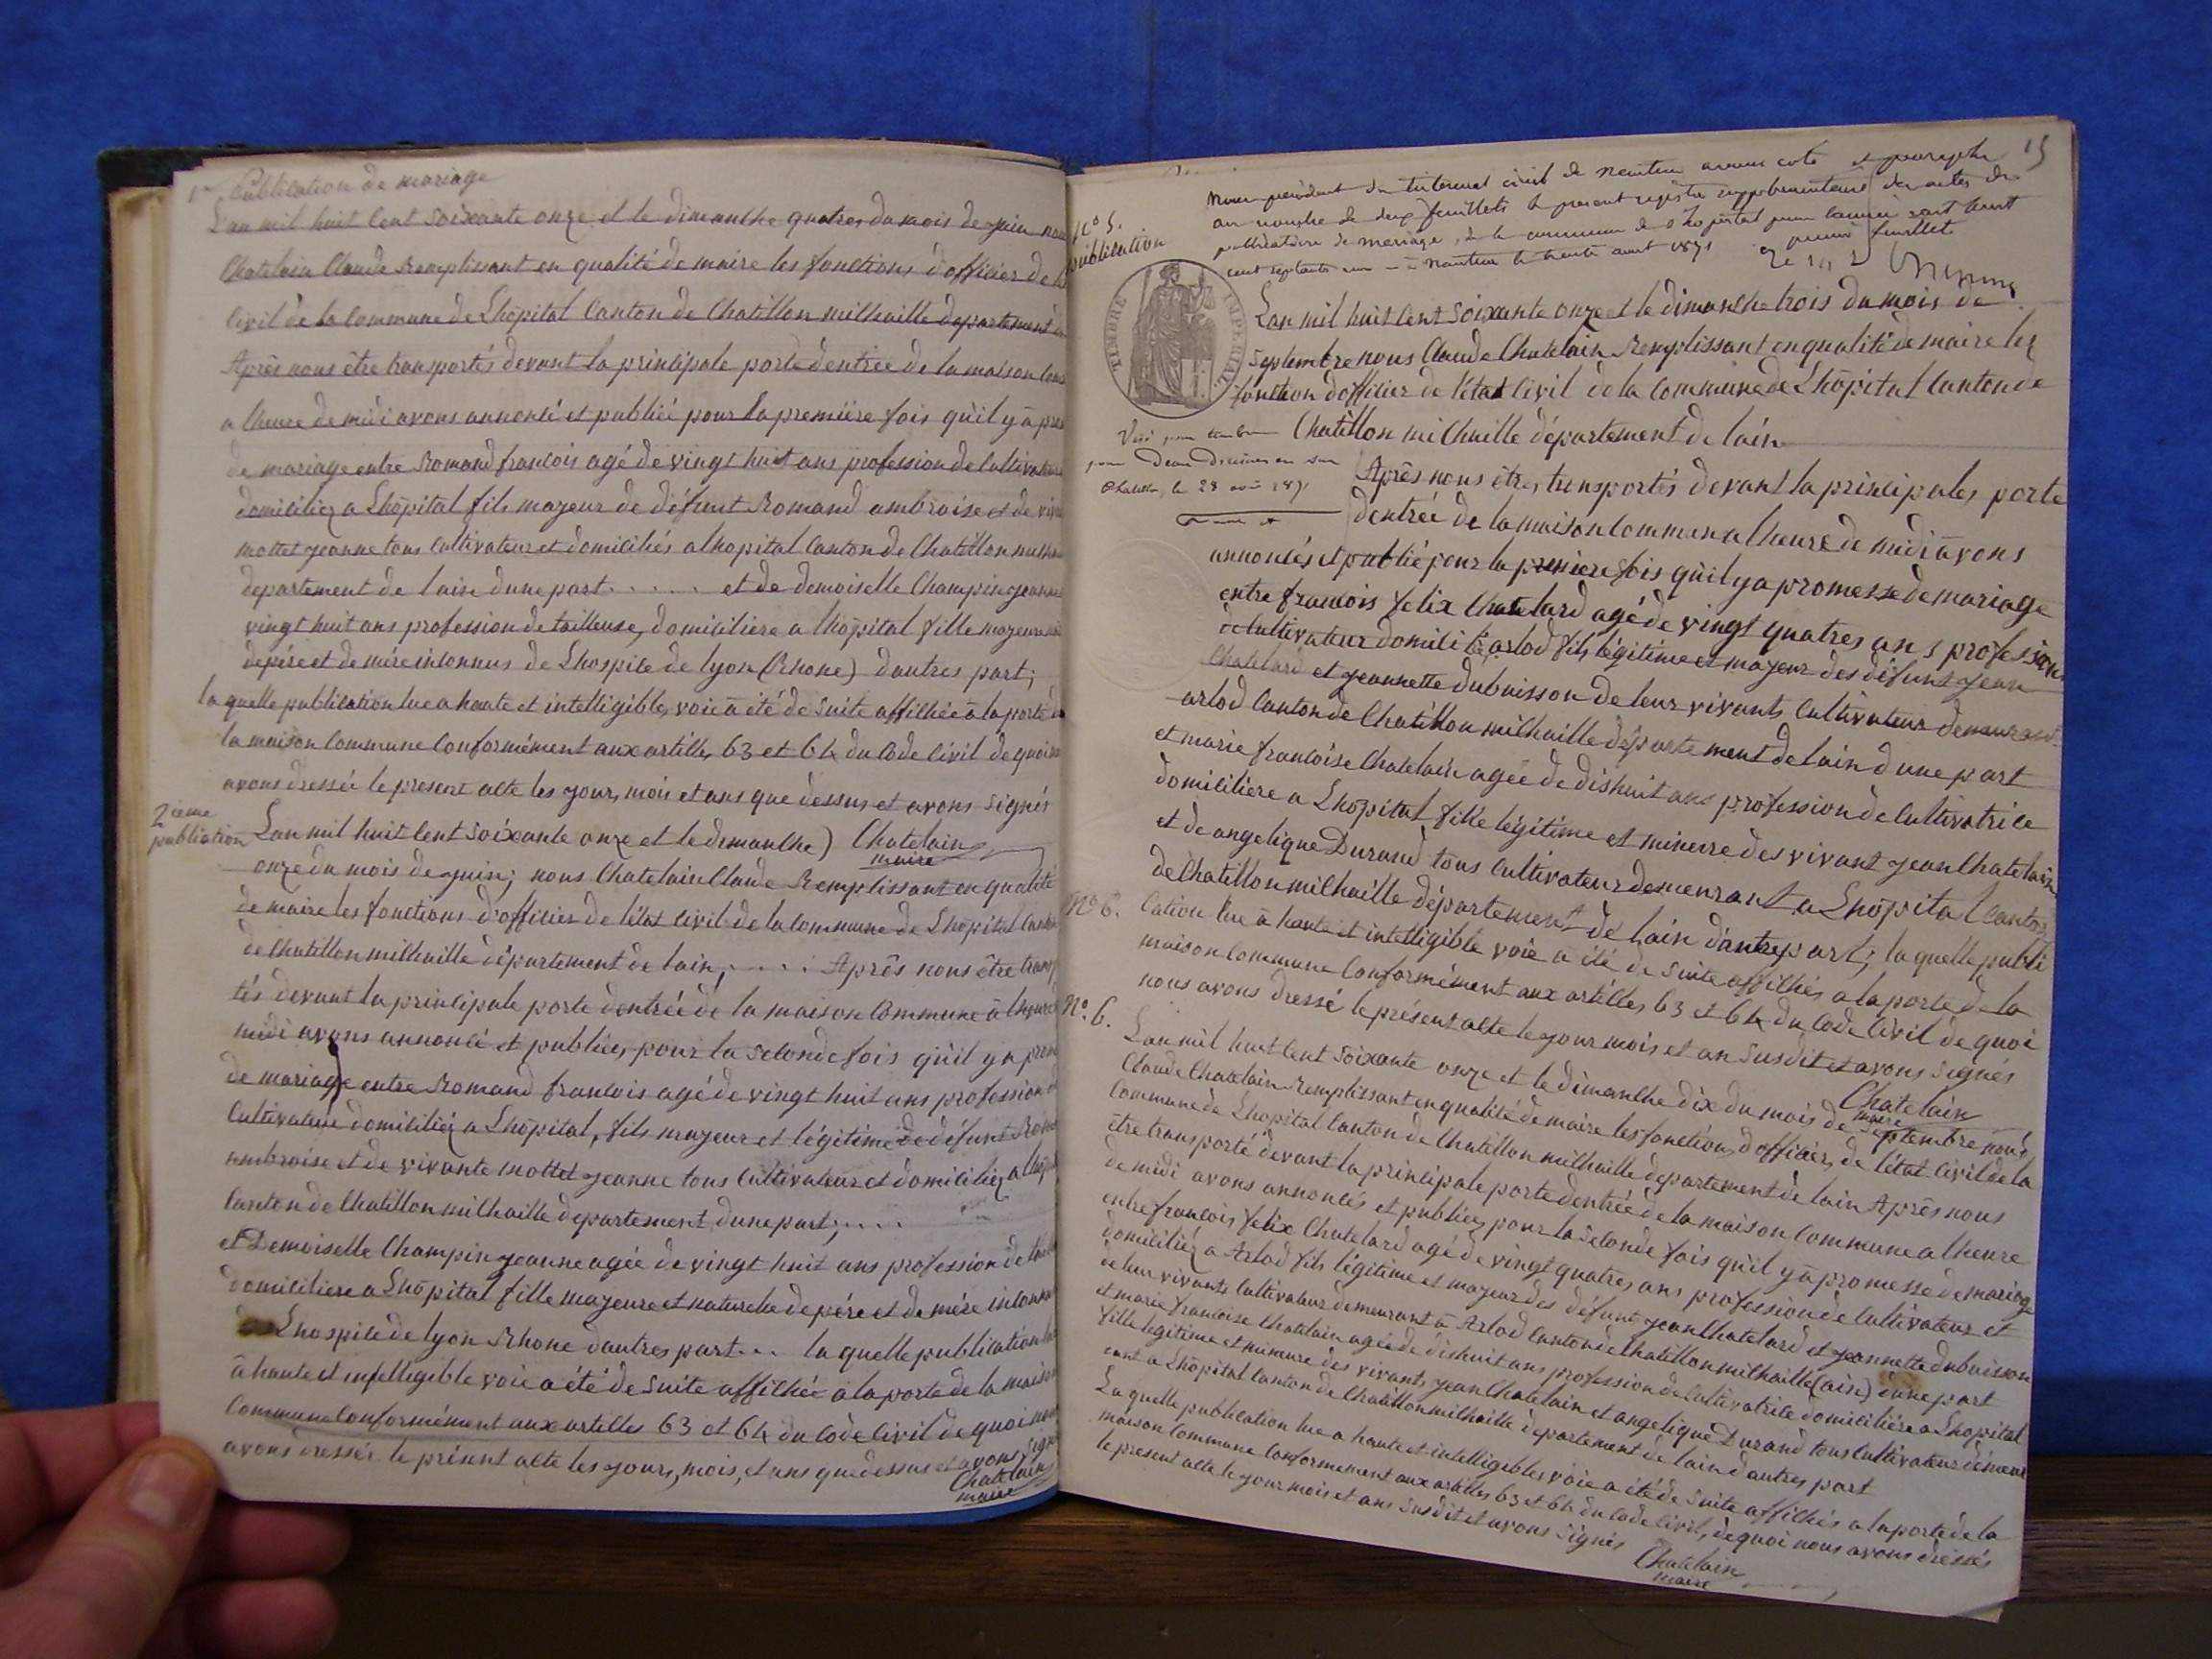 1re Publication de mariage
L'an mil huit cent soixante onze et le dimanche quatres du mois de juin nous
Chatelain Claude Remplissant en qualité de maire les fonctions d'officier de
civil de la Commune de Lhôpital Canton de Chatillon milhaille departement
Après nous être transportés devant la principale porte dentrée de la maison
a lheure de midi avons annoncé et publié pour la première fois qu'il y à
de mariage entre Romand francois agé de vingt huit ans profession de Cultivateur
domiciliez a Lhôpital fils mageur de défunt Romand ambroise et de
mottet jeanne tous Cultivateur et domiciliés a lhopital Canton de Chatillon
departement de lain dune part . . . . . et de demoiselle Champin jeanne
vingt huit ans profession de tailleuse, domiciliere a lhôpital fille mageure
de père et de mére inconnus de Lhospice de lyon (Rhone) dautres part;
la quelle publication lue a haute et intelligible, voie à été de suite affichée à la porte
la maison Commune Conformément aux articles 63 et 64 du Code Civil de quoi
avons dressée le present acte les jours, mois et ans que dessus et avons signés
2ieme
publication
Lan mil huit Cent soixante onze et le dimanche) Chatelain
maire
onze du mois de juin; nous Chatelain Claude Remplissant en qualité
de maire les fonctions d'officier de létat Civil de la Commune de Lhôpital
de Chatillon milhaille département de lain, . . . . Après nous être
tés devant la principale porte dentrée de la maison Commune à lheure
midi avons annoncé et publiée, pour la seconde fois qu'il y a
de mariage entre Romand francois agé de vingt huit ans profession
Cultivateur domiciliez a Lhôpital, fils mageur et légitime de défunt
ambroise et de vivante mottet jeanne tous Cultivateur et domiciliez a
Canton de Chatillon milhaille departement dune part; . . . .
et Demoiselle Champin jeanne agée de vingt huit ans profession de
domiciliere a Lhôpital fille mageure et naturelle de père et de mére
Lhospice de lyon Rhone dautres part . . . la quelle publication
à haute et intelligible voie a été de suite affichée a la porte de la maison
Commune Conformément aux articles 63 et 64 du Code Civil de quoi
avons dressée le présent acte les jours, mois, et ans que dessus et avons
Chatelain
maire
15
N° 5.
publication
Nous président du tribunal civil de Nantua avons coté et paraphé
au nombre de deux feuillets le present registre supplémentaire des actes de
publications de mariage, de la commune de l'hopital pour l'année mil huit
cent septante un - Nantua le trente aout 1871
feuillet
TIMBRE IMPERIAL
Visé pour timbre
Chatillon, le 28 1871
Lan mil huit Cent soixante onze et le dimanche trois du mois de
septembre nous Claude Chatelain Remplissant en qualité de maire les
fonction d'officier de l'état Civil de la Commune de Lhôpital Canton de
Chatillon milhaille département de lain
Après nous êtres transportés devant la principales porte
dentrée de la maison Commune a lheure de midi avons
annoncés et publié pour la premiere fois qu'il y a promesse de mariage
entre francois felix Chatelard agé de vingt quatres ans profession
de Cultivateur domicilié arlod fils légitime et mageur des défunt jean
Chatelard et jeannette dubuisson de leur vivants Cultivateur demeurant
arlod Canton de Chatillon milhaille département de lain dune part
et marie francoise Chatelain agée de dishuit ans profession de Cultivatrice
domiciliere a Lhôpital fille légitime et mineure des vivant jean Chatelain
et de angelique Durand tous Cultivateur demeurant a Lhôpital Canton
de Chatillon milhaille département de lain dautre part; la quelle publi
N° 6.
cation lue à haute et intelligible voie a été de suite affichés a la porte de la
maison Commune Conformément aux articles 63 et 64 du Code Civil de quoi
nous avons dressé le présent acte le jour mois et an susdit et avons signés
Chatelain
maire
N°. 6.
Lan mil huit Cent soixante onze et le dimanche dix du mois de septembre nous
Claude Chatelain Remplissant en qualité de maire les fonctions d'officier, de létat Civil de la
Commune de Lhopital Canton de Chatillon milhaille departement de lain Après nous
être transporté devant la principale porte dentrée de la maison Commune a lheure
de midi avons annoncés et publiéz pour la seconde fois qu'il y à promesse de mariage
entre francois felix Chatelard agé de vingt quatres ans profession de Cultivateur et
domiciliéz a Arlod fils légitime et mageur des défunt jean Chatelard et jeannette dubuisson
de leur vivants Cultivateur demeurant à Arlod Canton de Chatillon milhaille (ain) dune part
et marie francoise Chatelain agée de dishuit ans profession de Cultivatrice domicilière a Lhopital
fille legitime et mineure des vivants jean Chatelain et angelique Durand tous Cultivateur demeu
rant a Lhôpital Canton de Chatillon milhaille departement de lain dautres part
La quelle publication lue a haute et intelligibles voie a été de suite affichés a la porte de la
maison Commune Conformement aux articles 63 et 64 du Code Civil, de quoi nous avons dressés
le present acte le jour mois et ans susdit et avons signés
Chatelain
maire